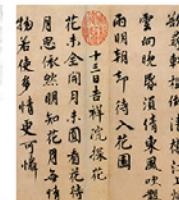 雲向晚昏須倩東風吹散
雨明朝却待入花園
十三日吉祥院探花
花未全開月未圓看花待
月思依然明知花月無情
物若使多情更可憐